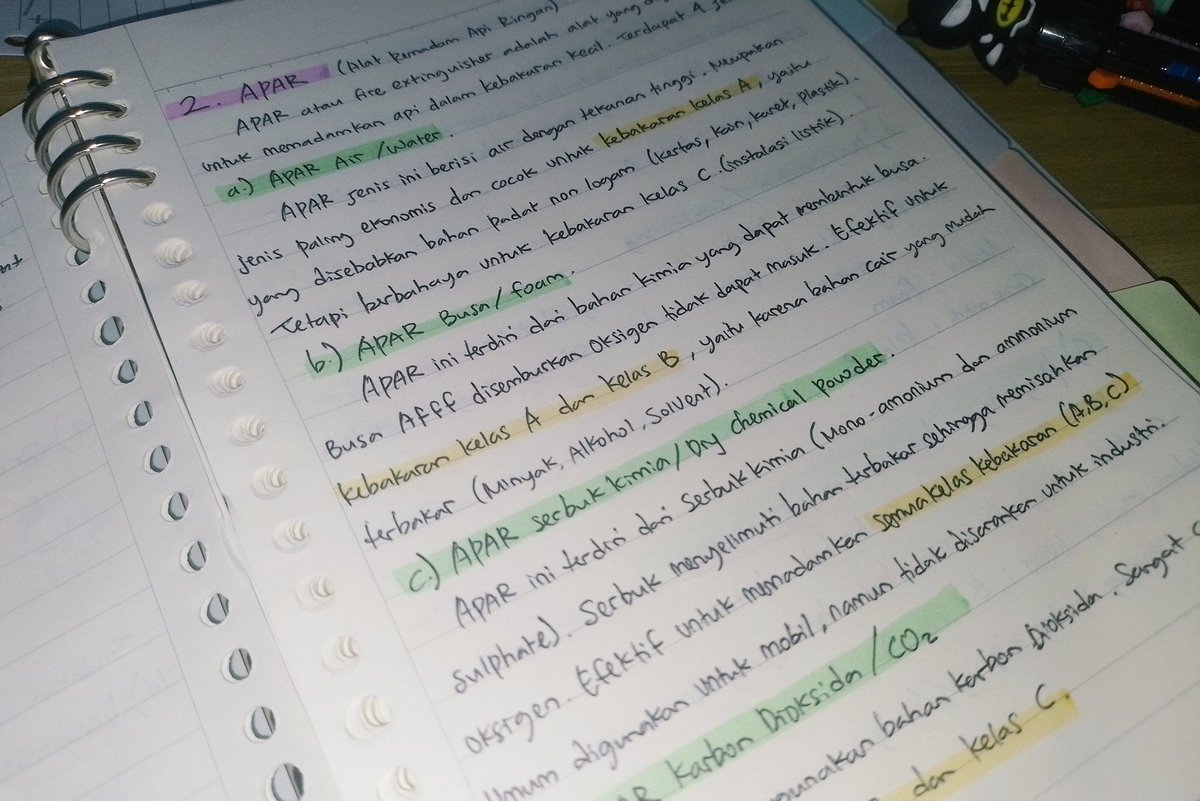 2. APAR (Alat Pemadam Api Ringan)
APAR atau fire extinguisher adalah alat yang
untuk memadamkan api dalam kebakaran kecil. Terdapat 4
a.) APAR Air / Water.
APAR jenis ini berisi air dengan tekanan tinggi. Merupakan
jenis paling ekonomis dan cocok untuk kebakaran kelas A, yaitu
yang disebabkan bahan padat non logam (kertas, kain, karet, plastik).
Tetapi berbahaya untuk kebakaran kelas C (instalasi listrik).
b.) APAR Busa / foam.
APAR ini terdiri dari bahan kimia yang dapat membentuk busa.
Busa AFFF disemburkan oksigen tidak dapat masuk. Efektif untuk
kebakaran kelas A dan kelas B, yaitu karena bahan cair yang mudah
terbakar (Minyak, Alkohol, Solvent).
c.) APAR serbuk kimia / Dry chemical Powder.
APAR ini terdiri dari serbuk kimia (Mono-amonium dan ammonium
sulphate). Serbuk menyelimuti bahan terbakar sehingga memisahkan
oksigen. Efektif untuk memadamkan semua kelas kebakaran (A,B,C)
Umum digunakan untuk mobil, namun tidak disarankan untuk industri.
Karbon Dioksida / CO2
bahan karbon Dioksida. Sangat
dan kelas C.